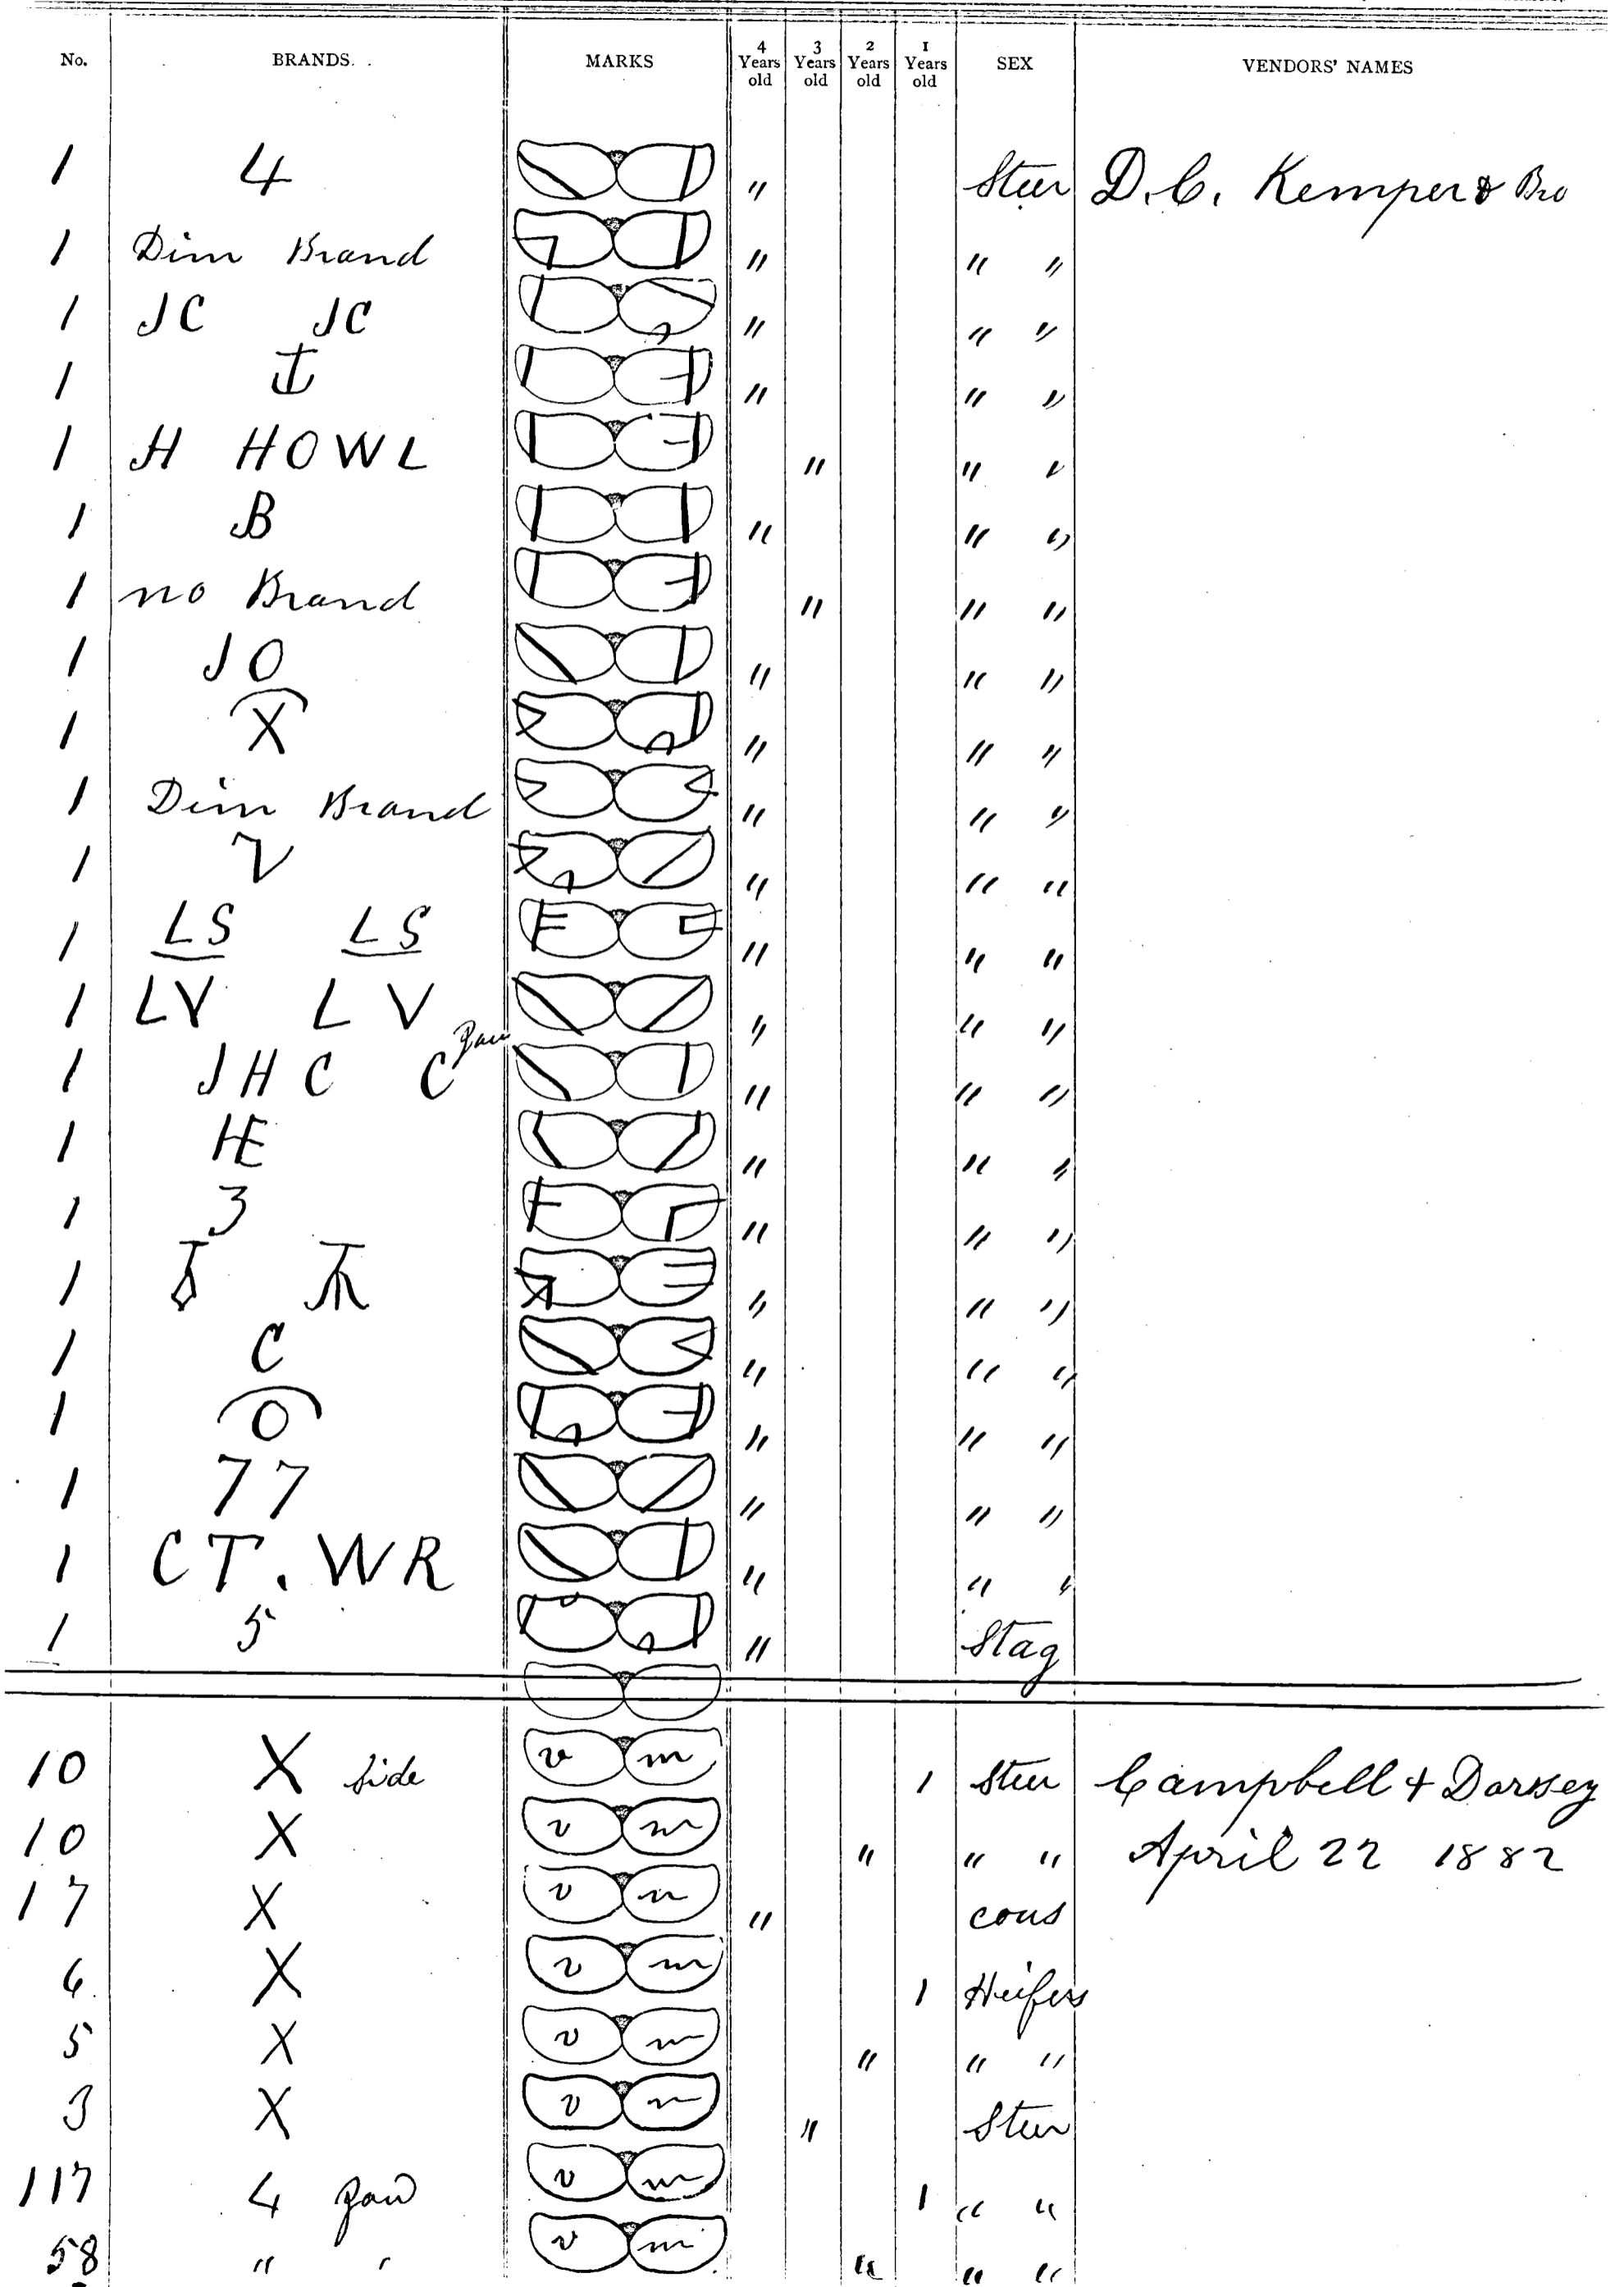 No. BRANDS. MARKS 4 Years old 3 Years old 2 Years old 1 Years old SEX VENDORS' NAMES
1 4 " Steer D. C. Kemper & Bro
1 Dim Brand " " "
1 JC JC " " "
1 " " "
1 H HOWL " " "
1 B " " "
1 no Brand " " "
1 JO " " "
1 X " " "
1 Dim Brand " " "
1 V " " "
1 LS LS " " "
1 LV L V " " "
1 J H C C Jaw " " "
1 HE " " "
1 3 " " "
1 " " "
1 C " " "
1 O " " "
1 77 " " "
1 CT. WR " " "
1 5 " Stag
10 X side v m 1 Steer Campbell & Dorsey
10 X v m " " " April 22 1882
17 X v m " cows
6 X v m 1 Heifers
5 X v m " " "
3 X v m " Steer
117 4 Jaw v m 1 " "
58 " " v m " " "